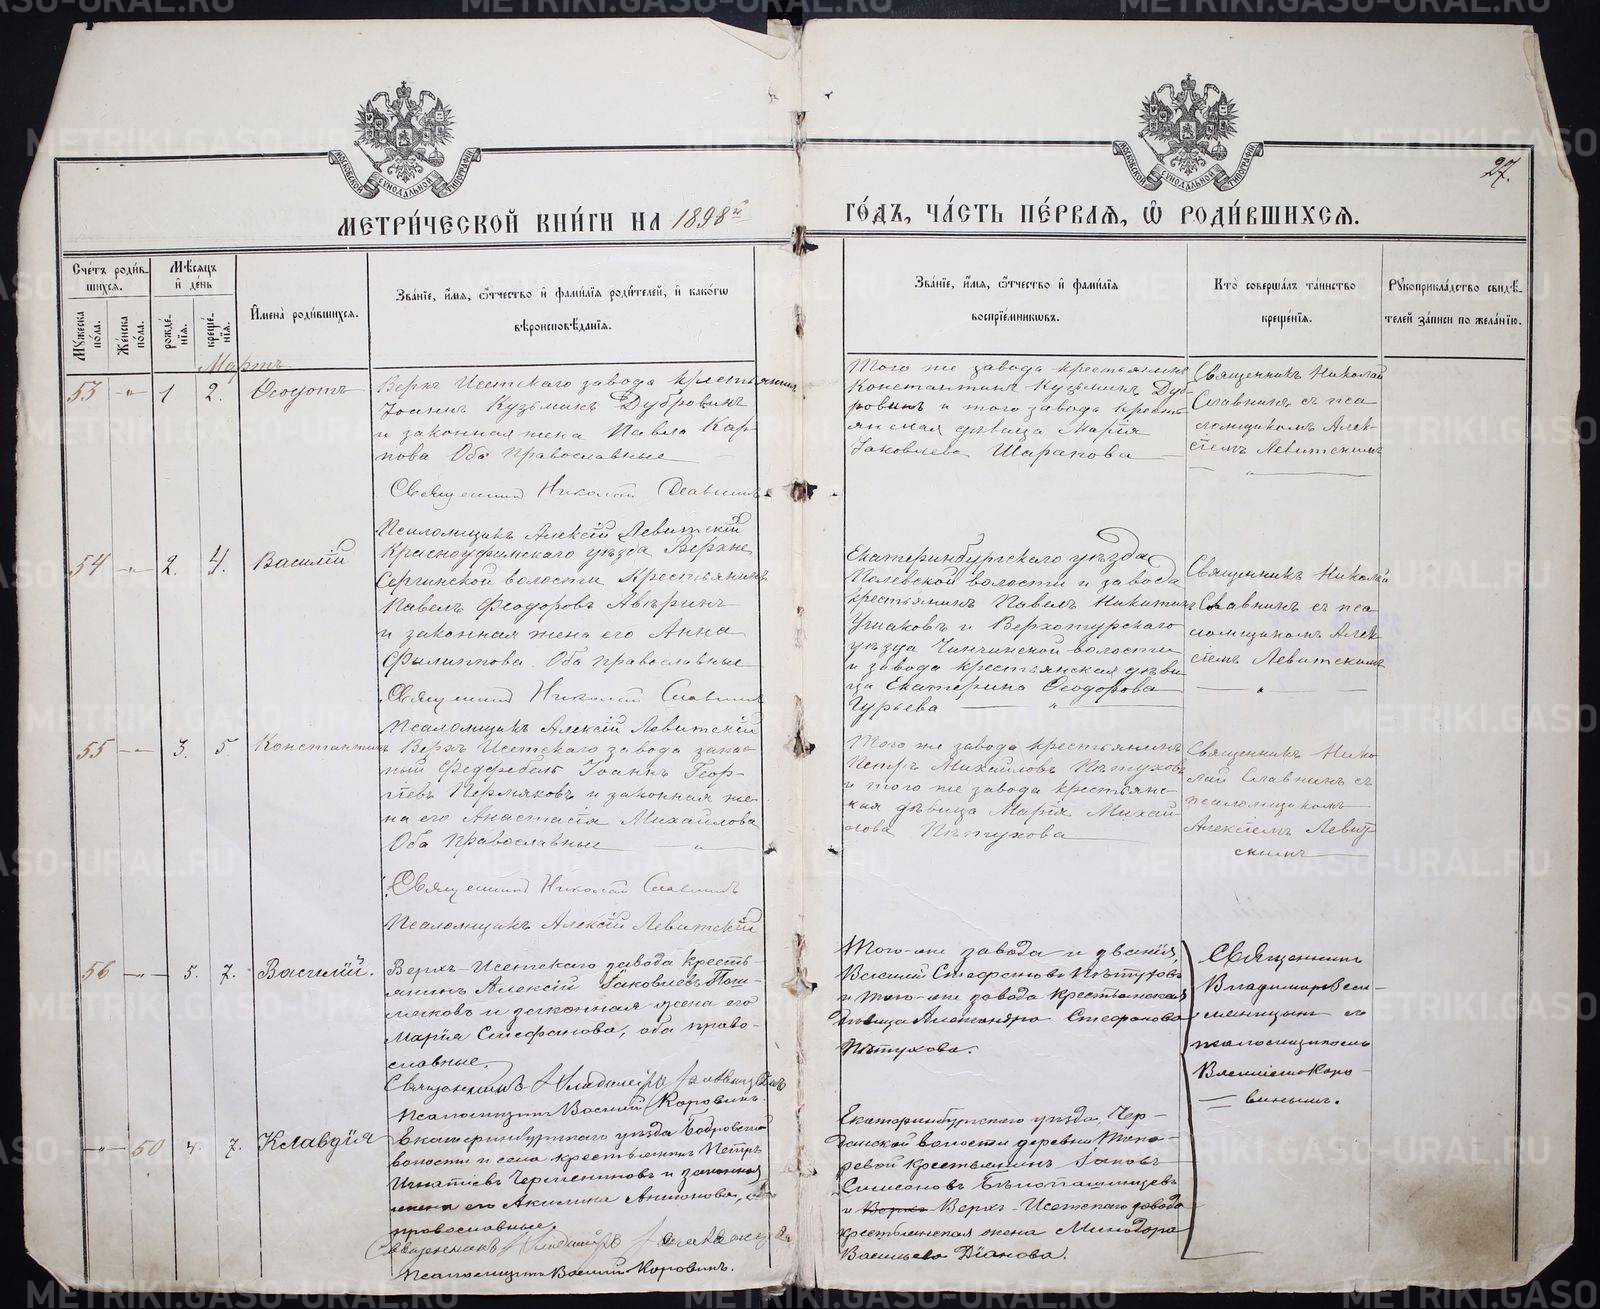 МЕТРИ́ЧЕСКОЙ КНИ́ГИ НА 1898й
ГО́ДЪ, ЧА́СТЬ ПЕ́РВАЯ, Ѽ РОДИ́ВШИХСЯ.
27.
МОСКОВСКОЙ СѴНОДАЛЬНОЙ ТИПОГРАФІИ
МОСКОВСКОЙ СѴНОДАЛЬНОЙ ТИПОГРАФІИ
Сче́тъ роди́в-
шихся.
Мѣ́сяцъ
и҆ де́нь
И҆мена̀ роди́вшихся.
Зва́нїе, и҆́мя, ѻ҆́тчество и҆ фами́лїя роди́телей, и҆ како́гѡ
вѣроисповѣ́данїя.
Зва́нїе, и҆́мя, ѻ҆́тчество и҆ фами́лїя
воспрїе́мникѡвъ.
Кто̀ соверша́лъ та́инство
креще́нїя.
Рꙋкоприкла́дство свидѣ́-
телей за́писи по жела́нїю.
Мꙋ́жеска
по́ла.
Же́нска
по́ла.
рожде́-
нїя.
креще́-
нїя.
Мартъ
53 -"- 1 2. Ѳеодотъ
Верхъ Исетскаго завода крестьянинъ
Іоаннъ Кузьминъ Дубровинъ
и законная жена Павла Кар-
пова Оба Православные
Священникъ Николай Славнинъ
Псаломщикъ Алексій Левитскій
Того же завода крестьянинъ
Константинъ Кузьминъ Дуб-
ровинъ и того завода кресть-
янская дѣвица Марія
Іаковлева Шарапова
Священникъ Николай
Славнинъ съ пса-
ломщикомъ Алек-
сіемъ Левитскимъ
54 -"- 2. 4. Василій
Красноуфимскаго уѣзда Верхне
Сергинской волости Крестьянинъ
Павелъ Феодоровъ Аверинъ
и законная жена его Анна
Филиппова Оба православные
Священникъ Николай Славнинъ
Псаломщикъ Алексій Левитскій
Екатеринбургскаго уѣзда
Полевской волости и завода
крестьянинъ Павелъ Никитинъ
Ушаковъ и Верхотурскаго
уѣзда волости
и завода крестьянская дѣви-
ца Екатерина Ѳеодорова
Гурьева
Священникъ Николай
Славнинъ съ пса-
ломщикомъ Алек-
сіемъ Левитскимъ
55 -"- 3. 5 Константинъ
Верхъ Исетскаго завода запас-
ный Федфебель Іоаннъ Геор-
гіевъ Пермяковъ и законная же-
на его Анастасія Михайлова
Оба православные
Священникъ Николай Славнинъ
Псаломщикъ Алексій Левитскій
Того же завода крестьянинъ
Петръ Михайловъ Пѣтуховъ
и того же завода крестьянс-
кая дѣвица Марія Михай-
лова Пѣтухова
Священникъ Нико-
лай Славнинъ съ
псаломщикомъ
Алексіемъ Левит-
скимъ
56 -"- 5. 7. Василій.
Верхъ-Исетскаго завода кресть-
янинъ Алексій Іаковлевъ
и законная жена его
Марія Стефанова, оба право-
славные.
Священникъ Владиміръ
Псаломщикъ Василій Коровинъ.
Того-же завода и званія,
Василій Стефановъ Пѣтуховъ
и того-же завода крестьянская
дѣвица Александра Стефанова
Пѣтухова.
Священникъ
Владиміръ
съ
псаломщикомъ
Василіемъ Коро-
винымъ.
-"- 50 4. 7. Клавдія
Екатеринбургскаго уѣзда Бобровской
волости и села крестьянинъ Петръ
Игнатіевъ и законная
жена его Акилина Антонова, оба
православные.
Священникъ Владиміръ
Псаломщикъ Василій Коровинъ.
Екатеринбургскаго уѣзда,
волости деревни
крестьянинъ Іаковъ
Симеоновъ
и Верхъ Верхъ-Исетскаго завода
крестьянская жена Минодора
Васильева Діанова.